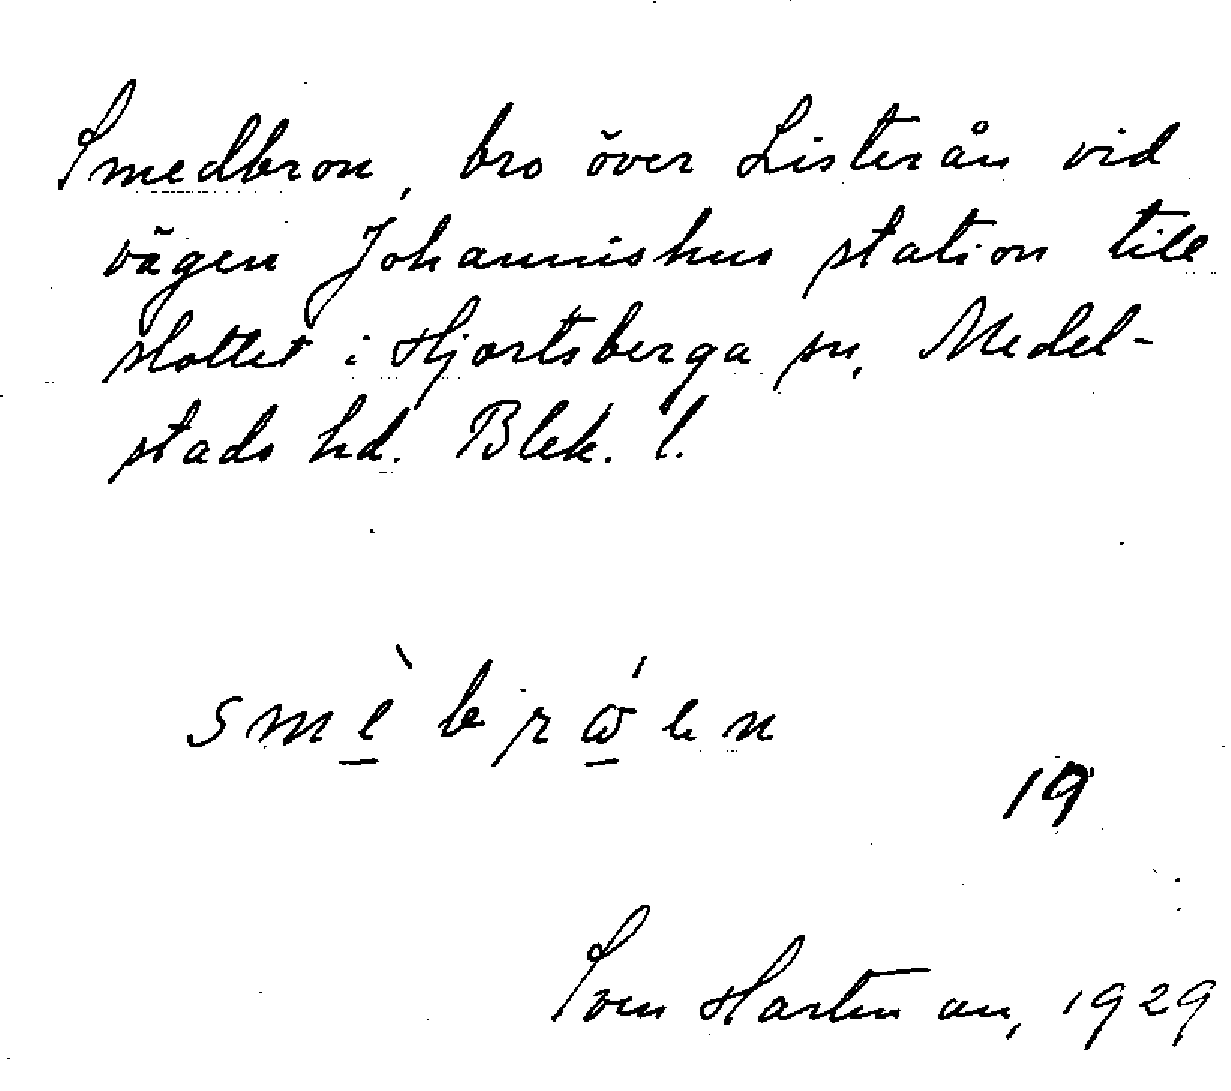 Smedbron, bro över Listerån vid
vägen Johannishus station till
slottet i Hjortsberga sn, Medel-
stads hd. Blek. l.
smè brω´en
19
Sven Hartman, 1929